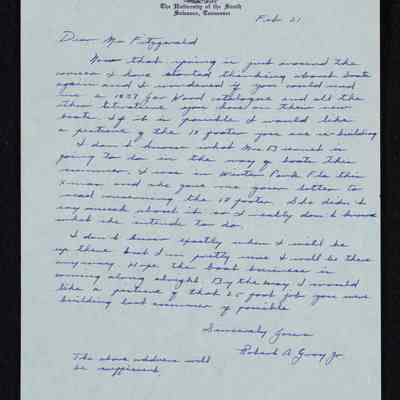 The University of the South
Sewanee, Tennessee
Feb. 21
Dear Mr Fitzgerald
Now that spring is just around the
corner I have started thinking about boats
again and I wondered if you could send
me a 1937 catalogue and all the
other literature you have on their new
boats. If it is possible I would like
a picture of the 18 footer you are re-building
I don't know what Mrs
going to do in the way of boats this
summer. I was in Winter Park Fla this
Xmas and she gave me your letter to
read concerning the 18 footer. She didn't
say much about it so I really don't know
what she intends to do.
I don't know exactly when I will be
up there but I'm pretty sure I will be there
anyway. Hope the boat business is
coming along alright. By the way I would
like a picture of that 25 foot job you were
building last summer if possible
Sincerely Yours
Robert A. Gray Jr.
The above address will
be sufficient.